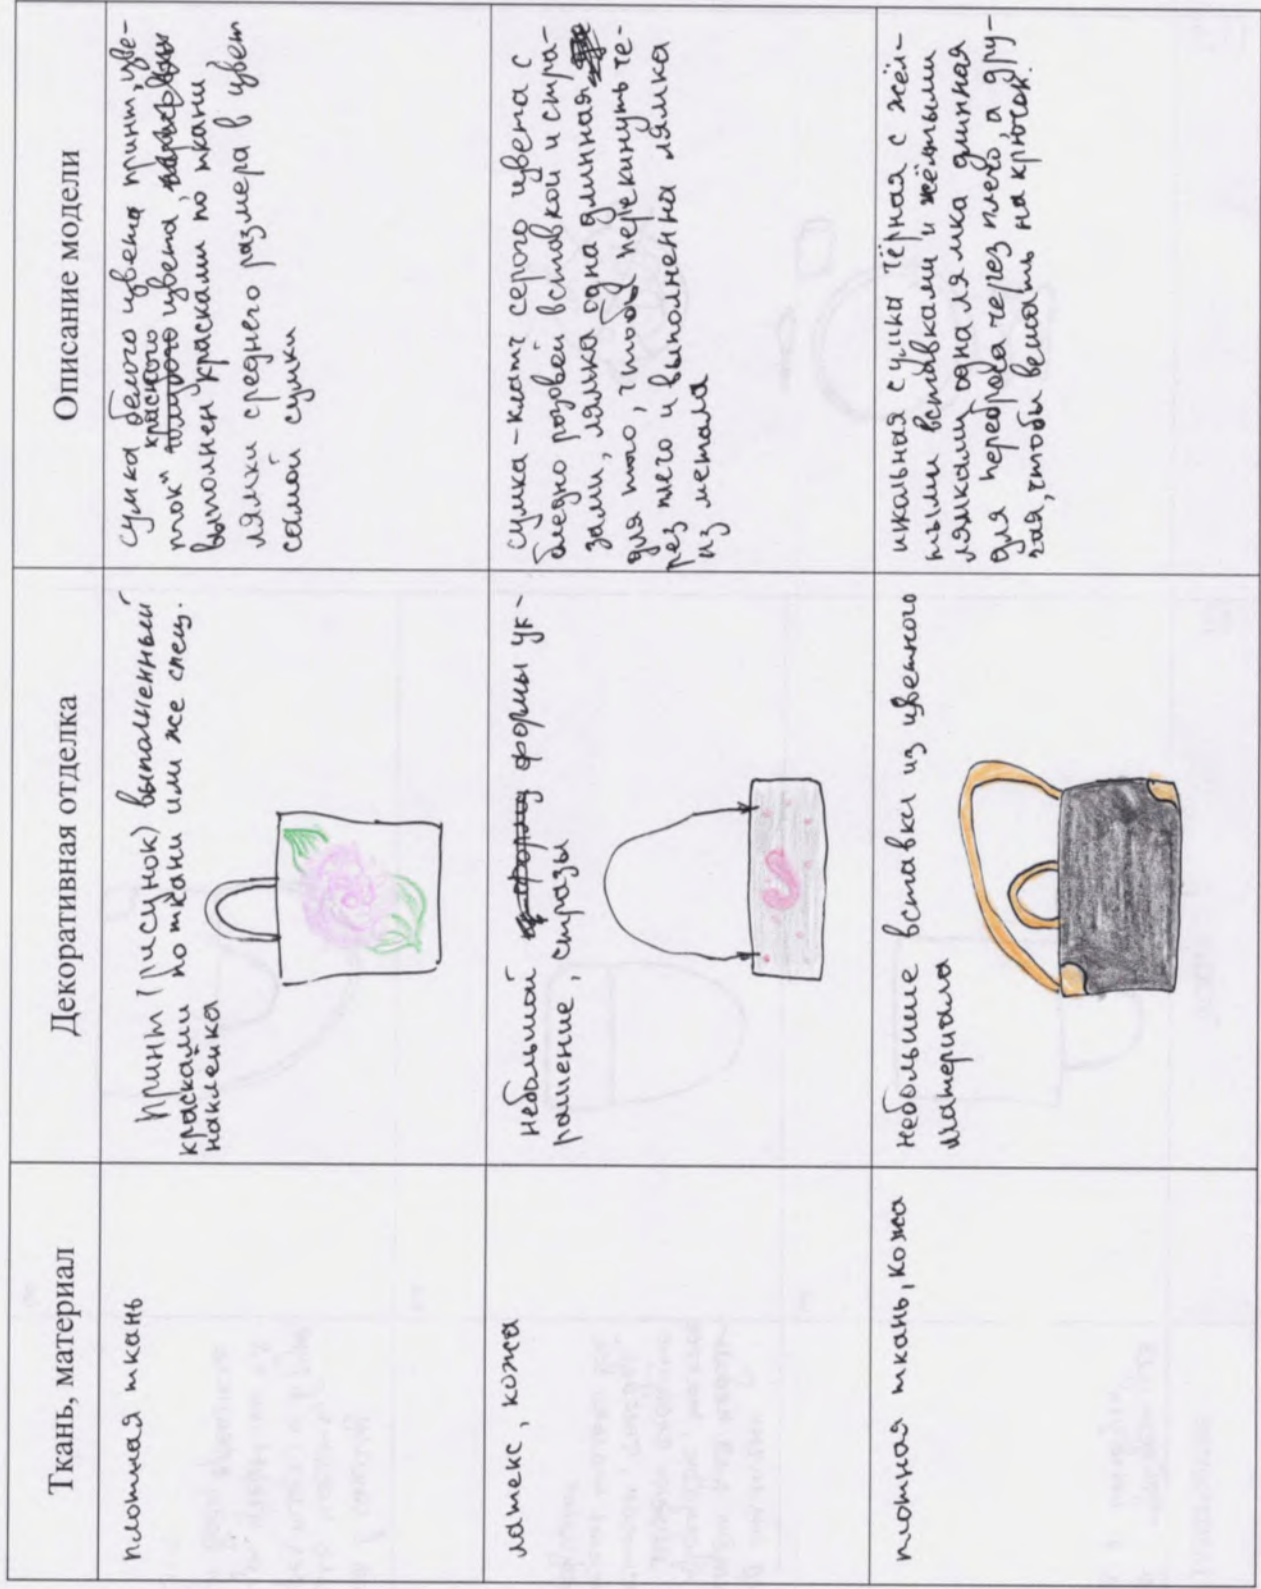 Ткань, материал
Декоративная отделка
Описание модели
плотная ткань
принт (рисунок) выполненный
красками по ткани или же спец.
наклейка
сумка белого цвета принт„цве-
ток" красного цвета,
выполнен красками по ткани
лямки среднего размера в цвет
самой сумки
латекс, кожа
небольшой формы ук-
рашение, стразы
сумка-клатч серого цвета с
бледно розовой вставкой и стра-
зами, лямка одна длинная
для того, чтобы перекинуть че-
рез плечо и выполненна лямка
из метала
плотная ткань, кожа
небольшие вставки из цветного
материала
школьная сумка чёрная с жёл-
тыми вставками и жёлтыми
лямками одна лямка длинная
для переброса через плечо, а дру-
гая, чтобы вешать на крючок.